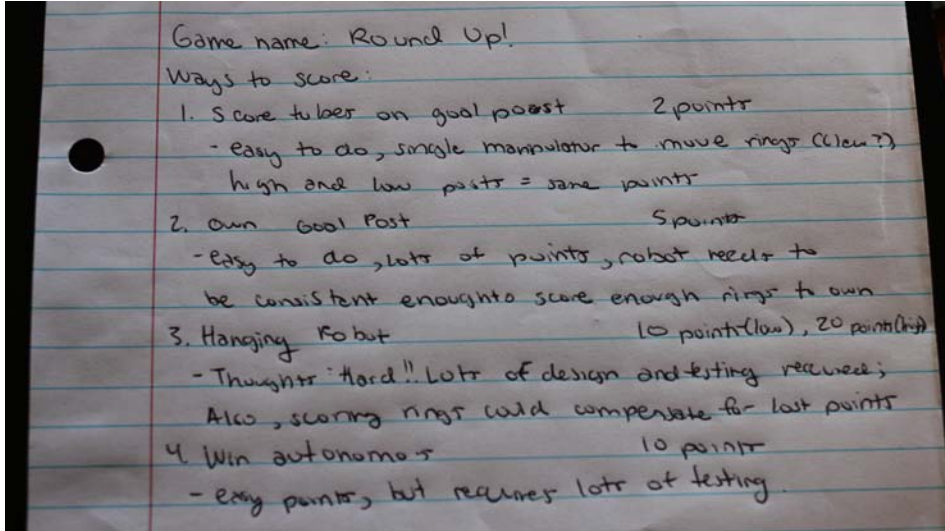 Game name: Round Up!
Ways to score:
1. Score tubes on goal poost 2 points
- easy to do, single manipulator to move rings (Claw?)
high and low posts = same points
2. Own Goal Post 5 points
- easy to do, lots of points, robot needs to
be consistent enoughto score enough rings to own
3. Hanging Robot 10 points(low), 20 points(high)
- Thoughts: Hard!! Lots of design and testing required;
Also, scoring rings could compensate for lost points
4. Win autonomos 10 points
- easy points, but requires lots of testing.